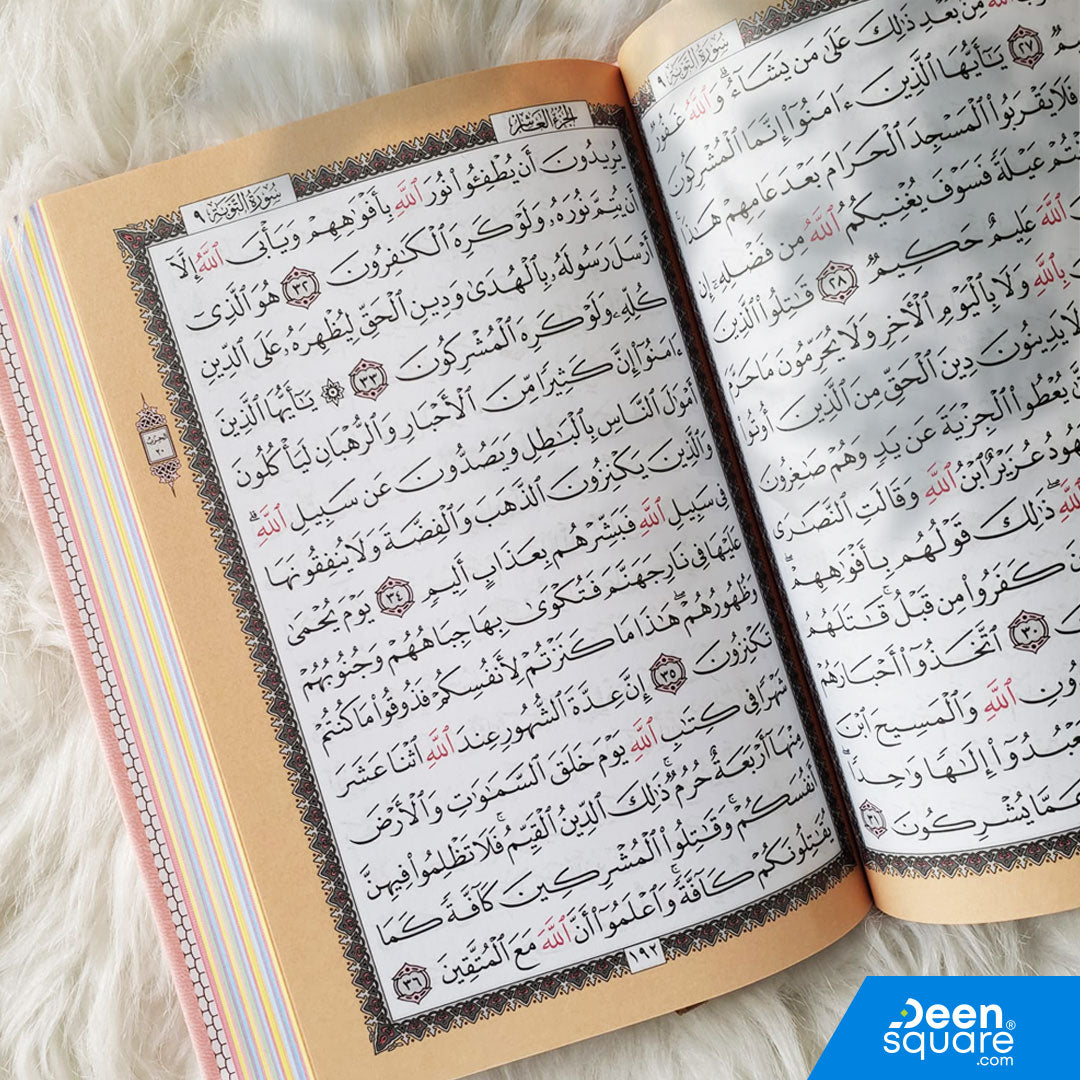 سُورَةُ التَّوْبَةِ ٩
ٱللَّهُ مِنۢ بَعْدِ ذَٰلِكَ عَلَىٰ مَن يَشَآءُ ۗ وَٱللَّهُ غَفُورٌ
٢٧ يَٰٓأَيُّهَا ٱلَّذِينَ ءَامَنُوٓا۟ إِنَّمَا ٱلْمُشْرِكُونَ
فَلَا يَقْرَبُوا۟ ٱلْمَسْجِدَ ٱلْحَرَامَ بَعْدَ عَامِهِمْ هَٰذَا ۚ
عَيْلَةً فَسَوْفَ يُغْنِيكُمُ ٱللَّهُ مِن فَضْلِهِۦٓ إِن
ٱللَّهَ عَلِيمٌ حَكِيمٌ ٢٨ قَٰتِلُوا۟ ٱلَّذِينَ
بِٱللَّهِ وَلَا بِٱلْيَوْمِ ٱلْءَاخِرِ وَلَا يُحَرِّمُونَ مَا حَرَّمَ
لَا يَدِينُونَ دِينَ ٱلْحَقِّ مِنَ ٱلَّذِينَ أُوتُوا۟
يُعْطُوا۟ ٱلْجِزْيَةَ عَن يَدٍ وَهُمْ صَٰغِرُونَ
عُزَيْرٌ ٱبْنُ ٱللَّهِ وَقَالَتِ ٱلنَّصَٰرَى
ٱللَّهِ ۖ ذَٰلِكَ قَوْلُهُم بِأَفْوَٰهِهِمْ ۖ
كَفَرُوا۟ مِن قَبْلُ ۚ قَٰتَلَهُمُ
٣٠ ٱتَّخَذُوٓا۟ أَحْبَارَهُمْ
ٱللَّهِ وَٱلْمَسِيحَ ٱبْنَ
إِلَٰهًا وَٰحِدًا ۖ
عَمَّا يُشْرِكُونَ ٣١
الجزء العاشر
سُورَةُ التَّوْبَةِ ٩
يُرِيدُونَ أَن يُطْفِـُٔوا۟ نُورَ ٱللَّهِ بِأَفْوَٰهِهِمْ وَيَأْبَى ٱللَّهُ إِلَّآ
أَن يُتِمَّ نُورَهُۥ وَلَوْ كَرِهَ ٱلْكَٰفِرُونَ ٣٢ هُوَ ٱلَّذِىٓ
أَرْسَلَ رَسُولَهُۥ بِٱلْهُدَىٰ وَدِينِ ٱلْحَقِّ لِيُظْهِرَهُۥ عَلَى ٱلدِّينِ
كُلِّهِۦ وَلَوْ كَرِهَ ٱلْمُشْرِكُونَ ٣٣ ۞ يَٰٓأَيُّهَا ٱلَّذِينَ
ءَامَنُوٓا۟ إِنَّ كَثِيرًا مِّنَ ٱلْأَحْبَارِ وَٱلرُّهْبَانِ لَيَأْكُلُونَ
أَمْوَٰلَ ٱلنَّاسِ بِٱلْبَٰطِلِ وَيَصُدُّونَ عَن سَبِيلِ ٱللَّهِ ۗ
وَٱلَّذِينَ يَكْنِزُونَ ٱلذَّهَبَ وَٱلْفِضَّةَ وَلَا يُنفِقُونَهَا
فِى سَبِيلِ ٱللَّهِ فَبَشِّرْهُم بِعَذَابٍ أَلِيمٍ ٣٤ يَوْمَ يُحْمَىٰ
عَلَيْهَا فِى نَارِ جَهَنَّمَ فَتُكْوَىٰ بِهَا جِبَاهُهُمْ وَجُنُوبُهُمْ
وَظُهُورُهُمْ ۖ هَٰذَا مَا كَنَزْتُمْ لِأَنفُسِكُمْ فَذُوقُوا۟ مَا كُنتُمْ
تَكْنِزُونَ ٣٥ إِنَّ عِدَّةَ ٱلشُّهُورِ عِندَ ٱللَّهِ ٱثْنَا عَشَرَ
شَهْرًا فِى كِتَٰبِ ٱللَّهِ يَوْمَ خَلَقَ ٱلسَّمَٰوَٰتِ وَٱلْأَرْضَ
مِنْهَآ أَرْبَعَةٌ حُرُمٌ ۚ ذَٰلِكَ ٱلدِّينُ ٱلْقَيِّمُ ۚ فَلَا تَظْلِمُوا۟ فِيهِنَّ
أَنفُسَكُمْ ۚ وَقَٰتِلُوا۟ ٱلْمُشْرِكِينَ كَآفَّةً كَمَا
يُقَٰتِلُونَكُمْ كَآفَّةً ۚ وَٱعْلَمُوٓا۟ أَنَّ ٱللَّهَ مَعَ ٱلْمُتَّقِينَ ٣٦
١٩٢
Deen
square®
.com